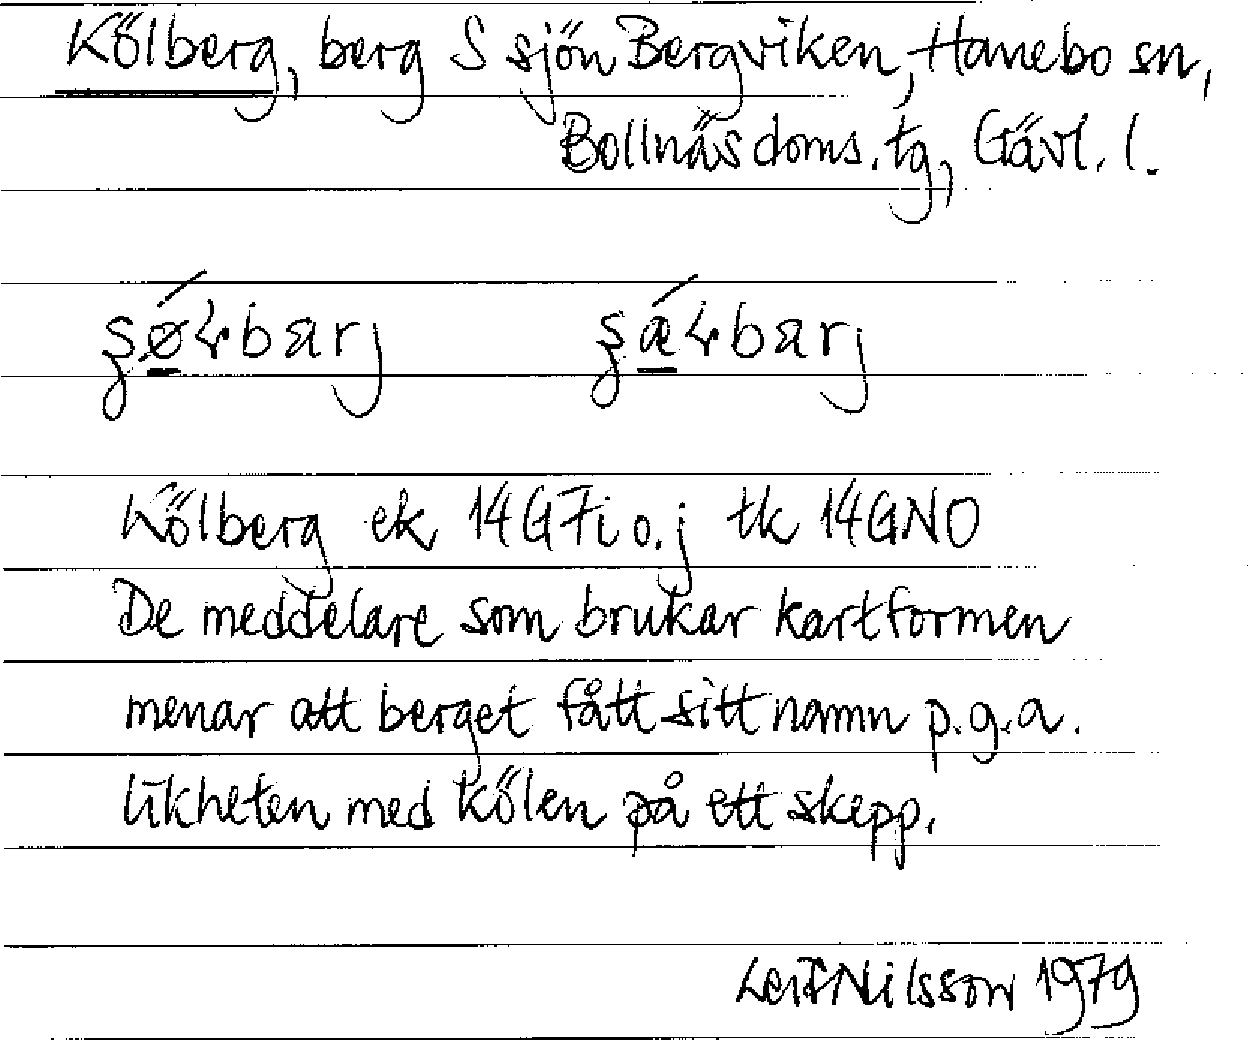 Kölberg, berg S sjön Bergviken, Hanebo sn,
Bollnäs doms. tg, Gävl. l.
Kölberg ek 14G7i o. j tk 14GNO
De meddelare som brukar kartformen
menar att berget fått sitt namn p.g.a.
likheten med kölen på ett skepp.
Leif Nilsson 1979